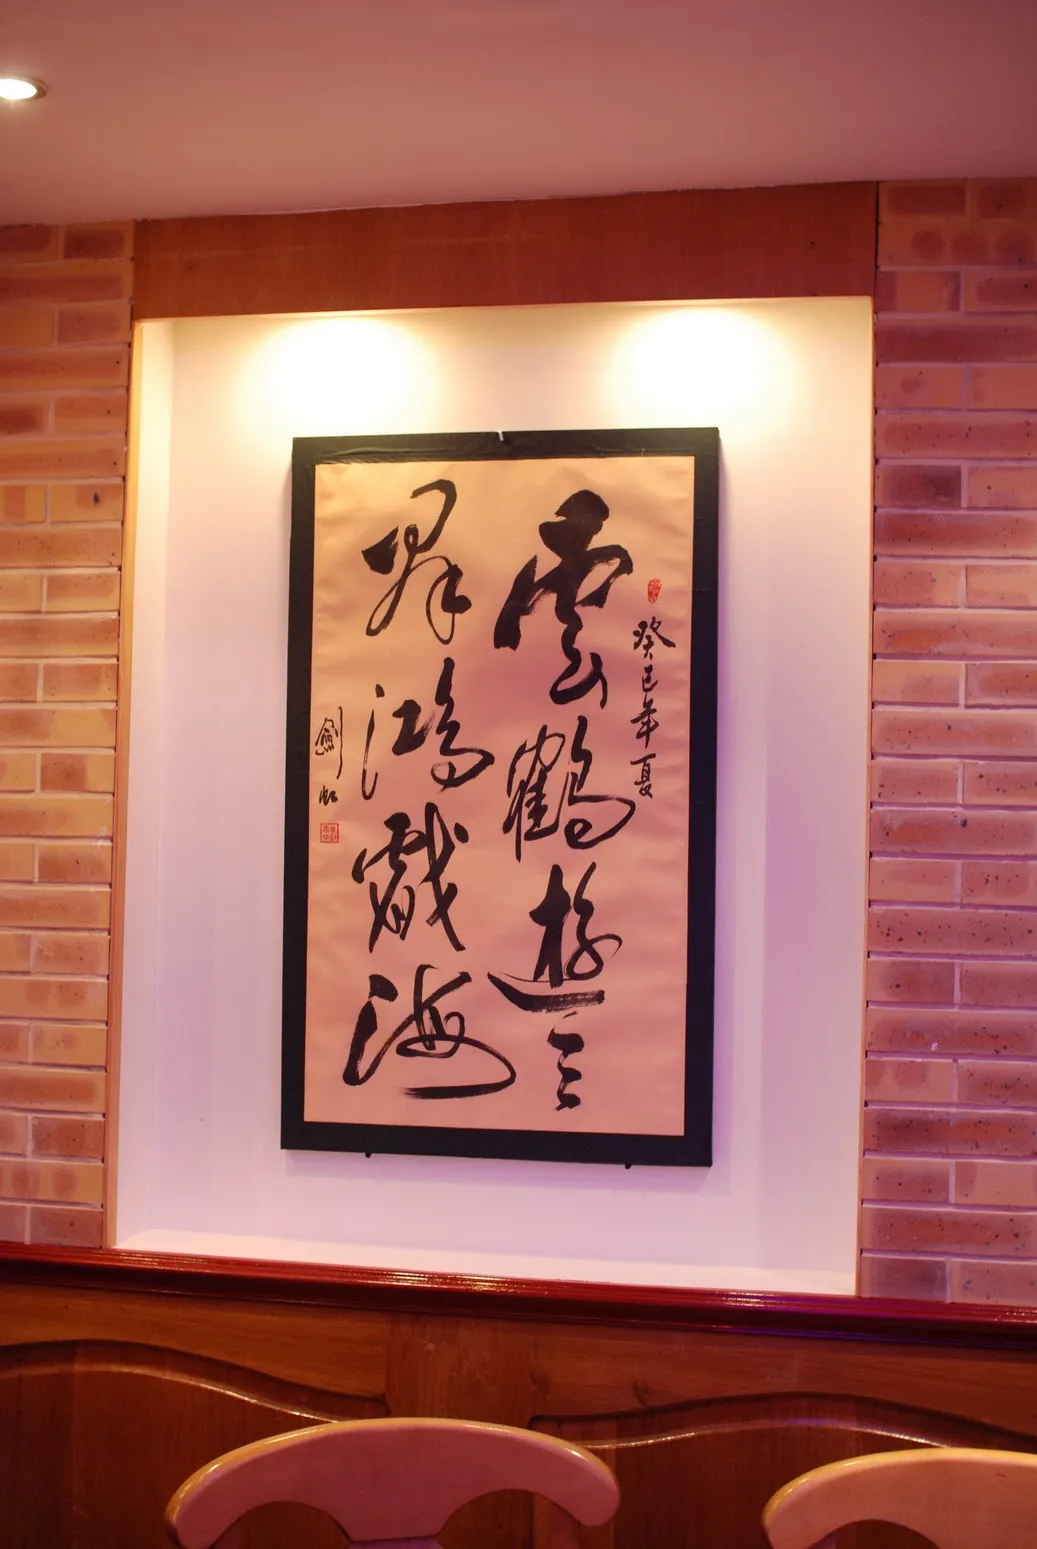 癸巳年夏
雲鶴遊天
群鴻戲海
劍虹